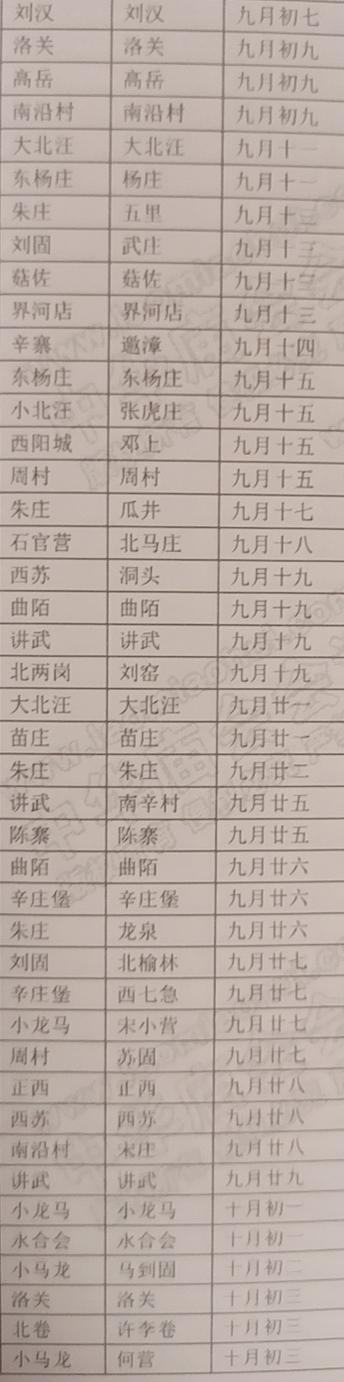 刘汉 刘汉 九月初七
洛关 洛关 九月初九
高岳 高岳 九月初九
南沿村 南沿村 九月初九
大北汪 大北汪 九月十一
东杨庄 杨庄 九月十一
朱庄 五里 九月十三
刘固 武庄 九月十三
菇佐 菇佐 九月十三
界河店 界河店 九月十三
辛寨 邀漳 九月十四
东杨庄 东杨庄 九月十五
小北汪 张虎庄 九月十五
西阳城 邓上 九月十五
周村 周村 九月十五
朱庄 瓜井 九月十七
石官营 北马庄 九月十八
西苏 洞头 九月十九
曲陌 曲陌 九月十九
讲武 讲武 九月十九
北两岗 刘窑 九月十九
大北汪 大北汪 九月廿一
苗庄 苗庄 九月廿一
朱庄 朱庄 九月廿二
讲武 南辛村 九月廿五
陈寨 陈寨 九月廿五
曲陌 曲陌 九月廿六
辛庄堡 辛庄堡 九月廿六
朱庄 龙泉 九月廿六
刘固 北榆林 九月廿七
辛庄堡 西七急 九月廿七
小龙马 宋小营 九月廿七
周村 苏固 九月廿七
正西 正西 九月廿八
西苏 西苏 九月廿八
南沿村 宋庄 九月廿八
讲武 讲武 九月廿九
小龙马 小龙马 十月初一
永合会 永合会 十月初一
小马龙 马到固 十月初二
洛关 洛关 十月初三
北卷 许李卷 十月初三
小马龙 何营 十月初三